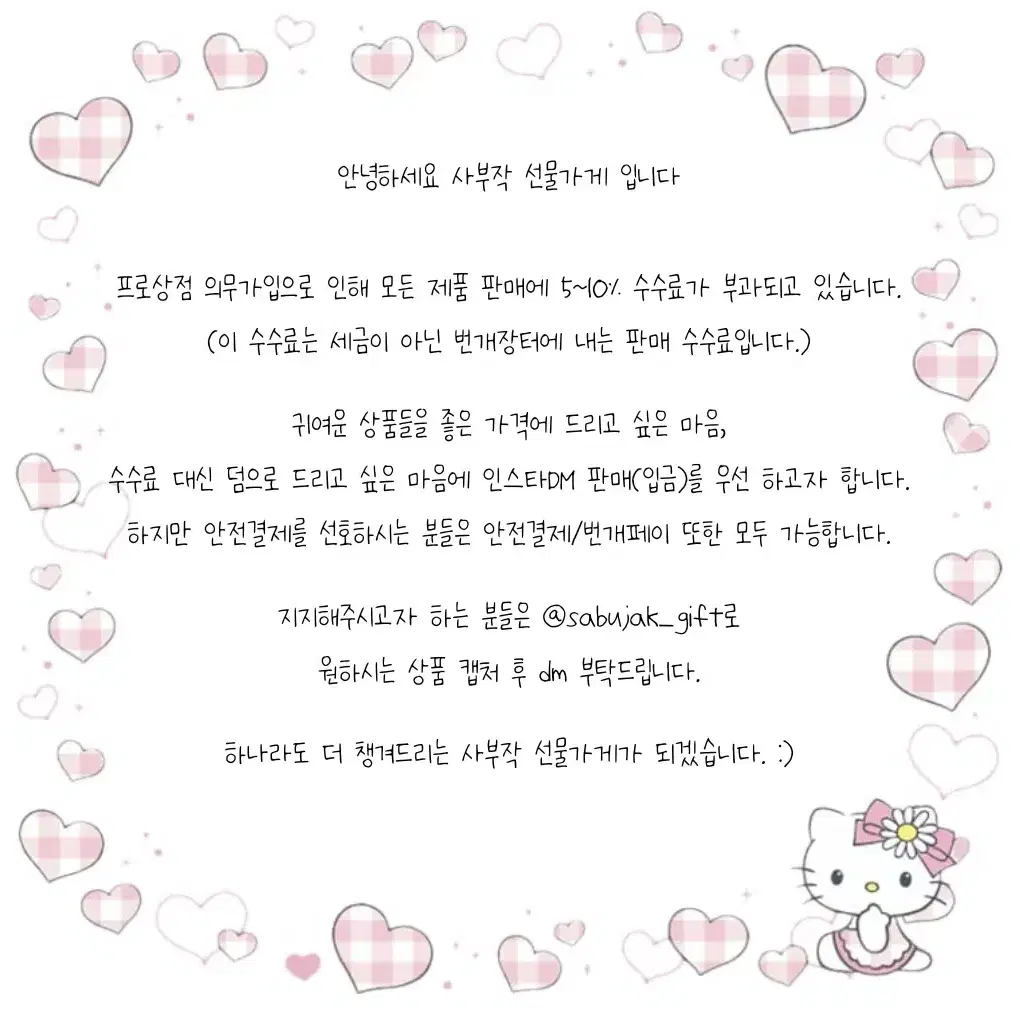 안녕하세요 사부작 선물가게 입니다
프로상점 의무가입으로 인해 모든 제품 판매에 5~10% 수수료가 부과되고 있습니다.
(이 수수료는 세금이 아닌 번개장터에 내는 판매 수수료입니다.)
귀여운 상품들을 좋은 가격에 드리고 싶은 마음,
수수료 대신 덤으로 드리고 싶은 마음에 인스타DM 판매(입금)를 우선 하고자 합니다.
하지만 안전결제를 선호하시는 분들은 안전결제/번개페이 또한 모두 가능합니다.
지지해주시고자 하는 분들은 @sabujak_gift로
원하시는 상품 캡처 후 dm 부탁드립니다.
하나라도 더 챙겨드리는 사부작 선물가게가 되겠습니다. :)